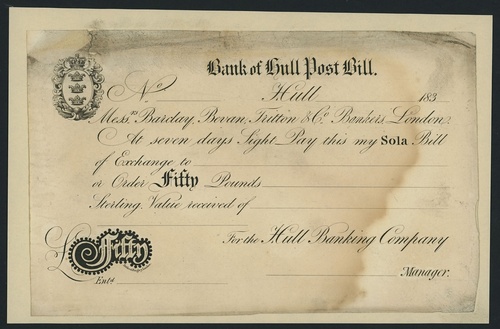 Bank of Hull Post Bill.
No Hull 183
Messrs Barclay, Bevan, Tritton & Co Bankers London.
At seven days Sight Pay this my Sola Bill
of Exchange to
or Order Fifty Pounds
Sterling Value received of
For the Hull Banking Company
£ Fifty
Entd Manager.